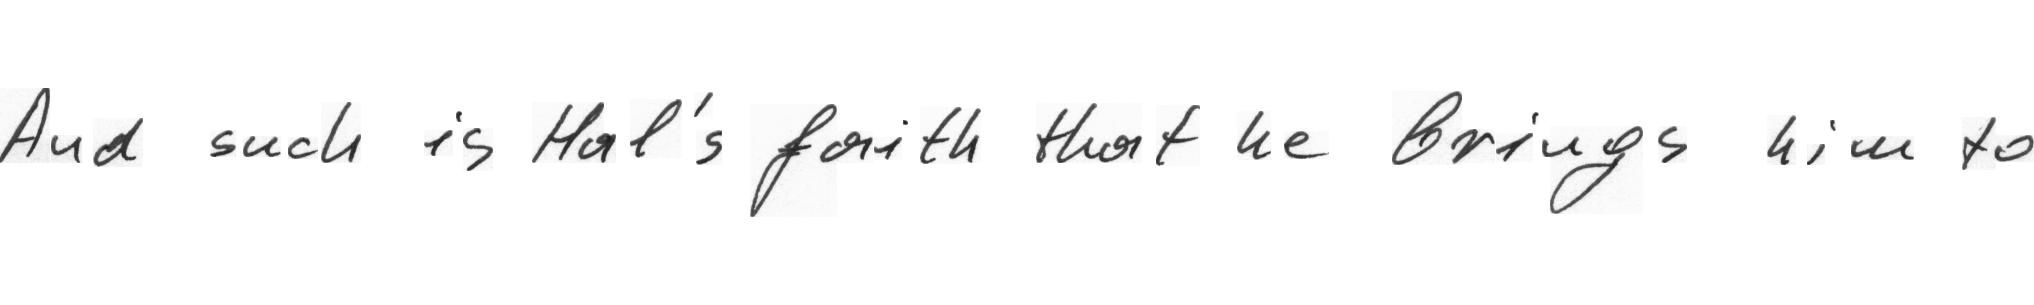 And such is Hal's faith that he brings him to